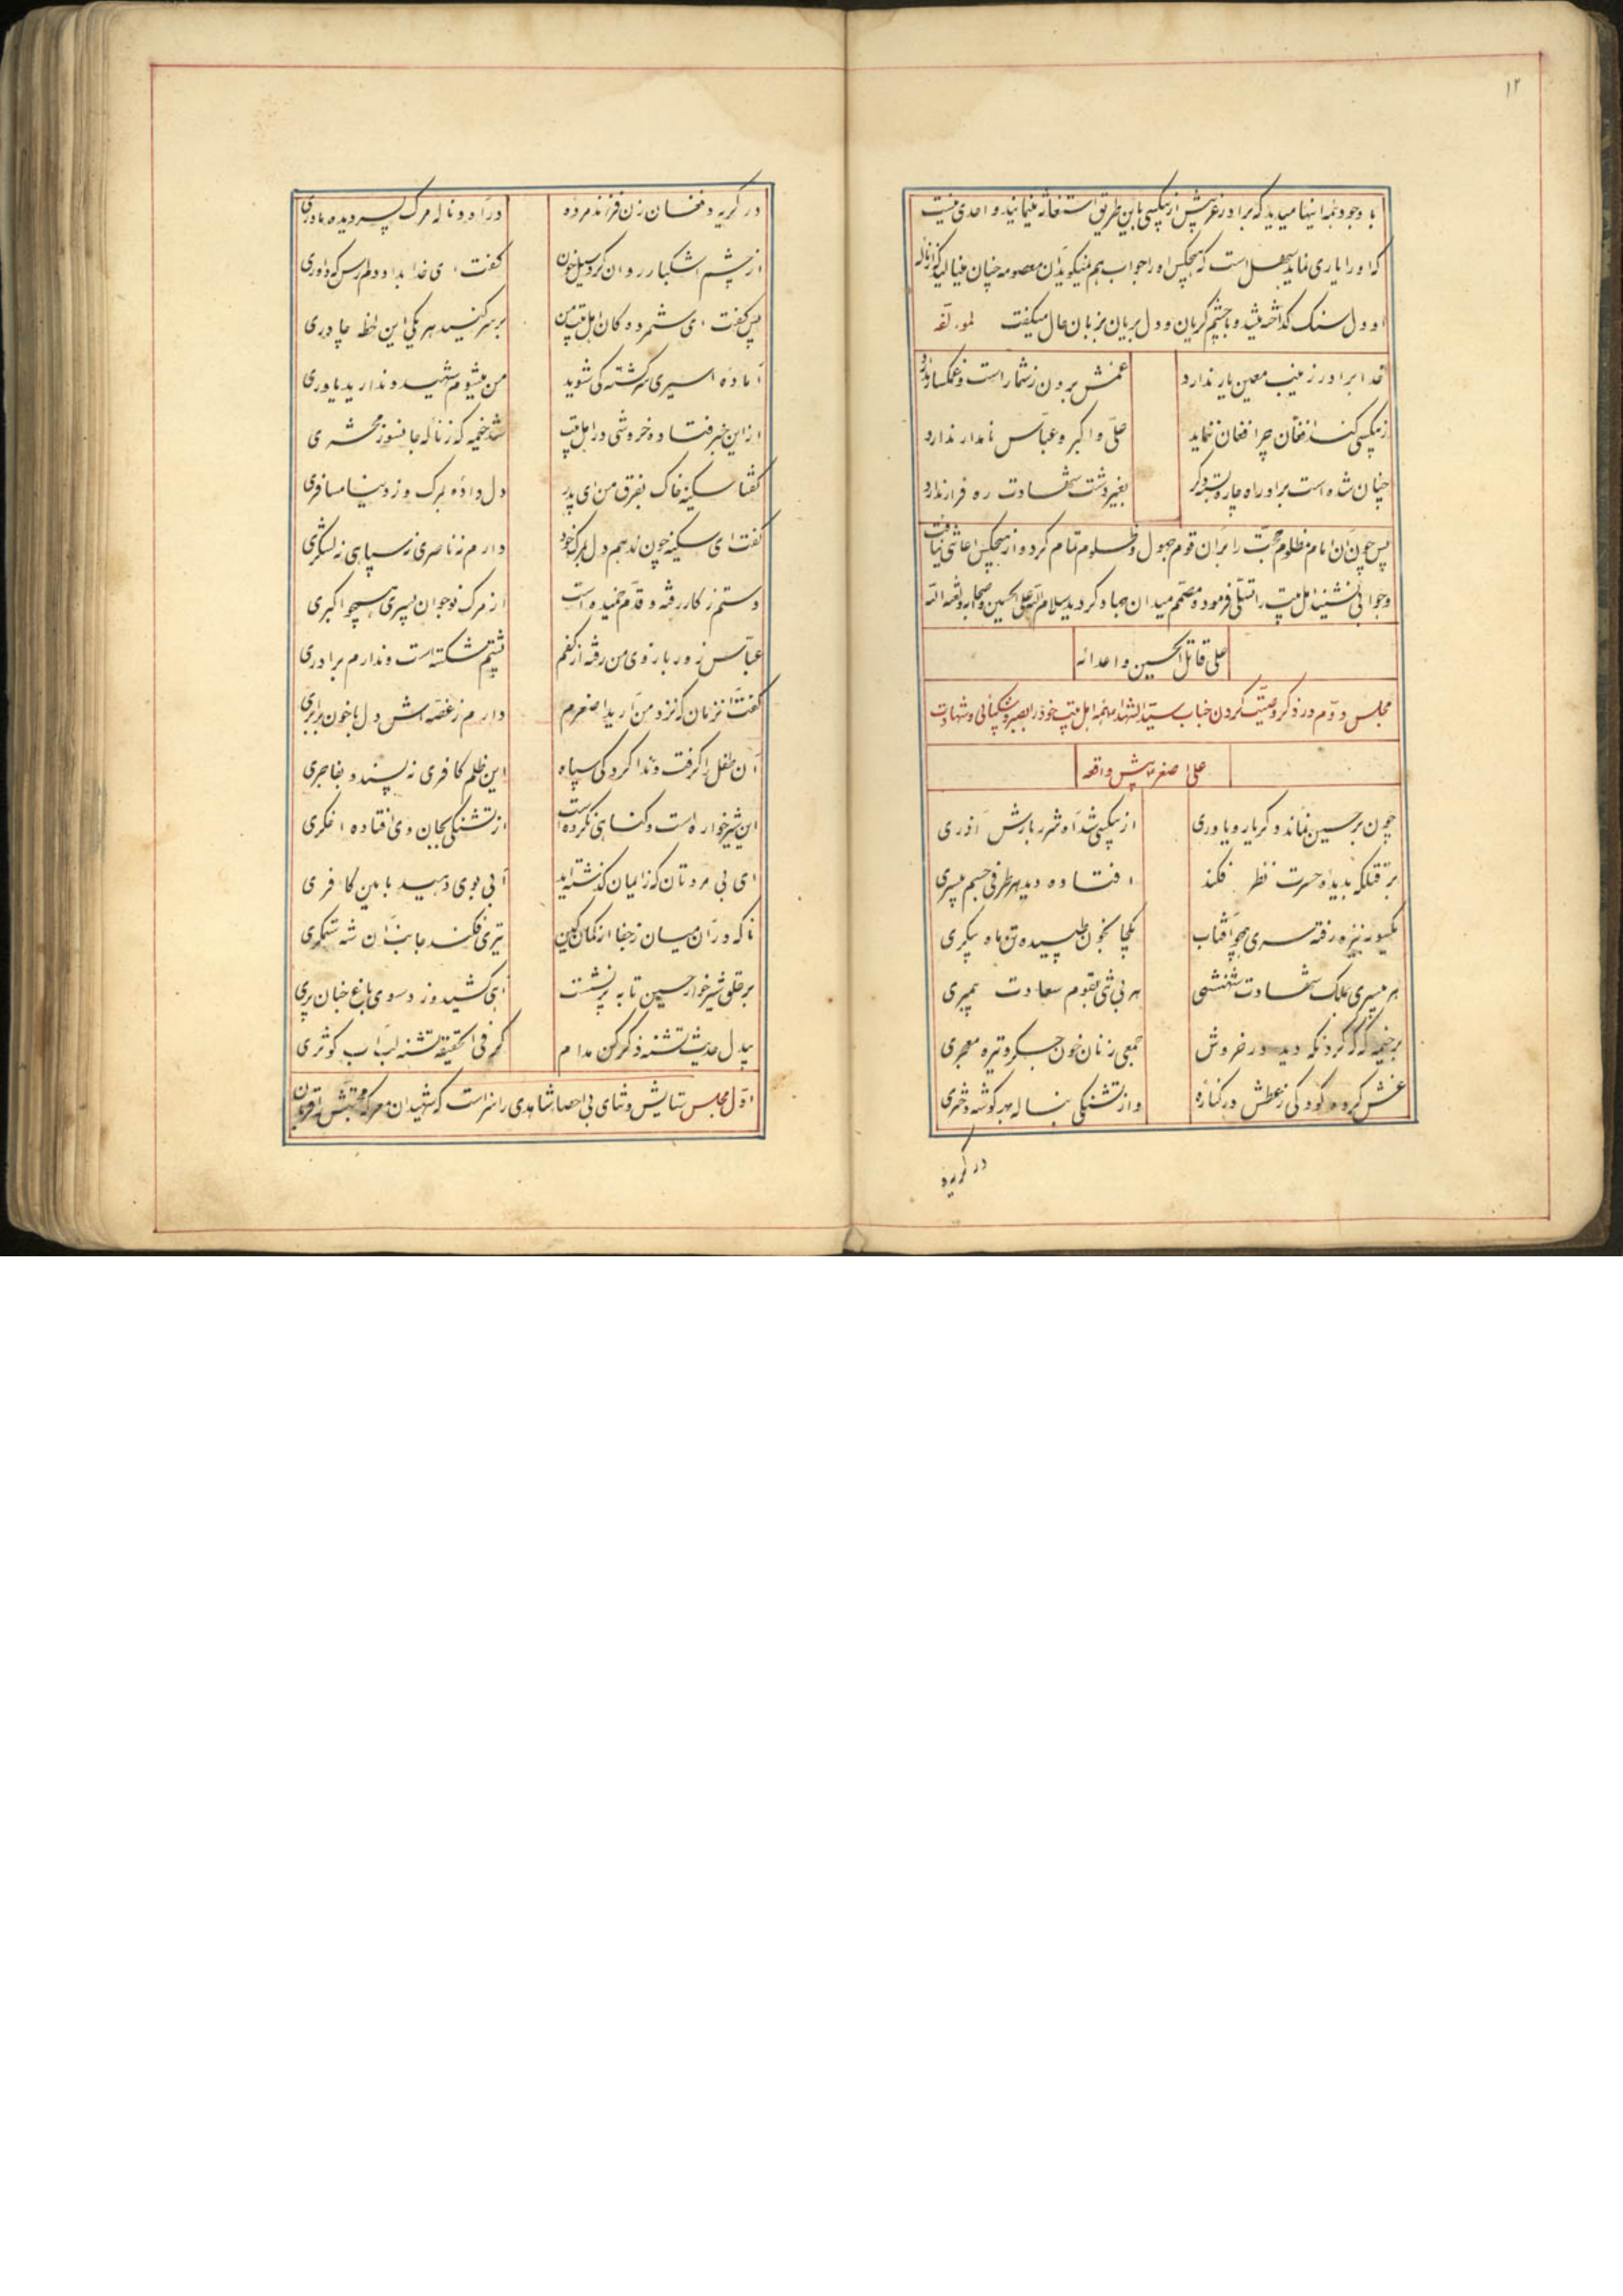 ۱۲
با وجود همه اینها میدید که برادر غریبش از بیکسی باین طریق استغاثه مینماید و احدی نیست
که او را یاری نماید سهل است که هیچکس او را جواب هم نمیگوید آن معصومه چنان مینالید که از ناله
او دل سنک کداخته میشد و با چشم کریان و دل بریان بزبان حال میکفت
خدا برادر زینب معین یار ندارد غمش برون ز شمار است و غمکسار ندارد
ز بیکسی کند افغان چرا فغان ننماید علی و اکبر و عباس نامدار ندارد
چنان شده است برادر راه چاره که دیکر بغیر دشت شهادت ره فرار ندارد
پس چون آن امام مظلوم حجت را بر آن قوم جهول و ظلوم تمام کرد و از هیچکس اعانتی نیافت
و جوابی نشنید اهل بیت را تسلی فرمود و مصمم میدان جهاد کردید سلام الله علی الحسین و اصحابه و لعنة الله
علی قاتل الحسین و اعدائه
مجلس دوم در ذکر وصیت کردن جناب سید الشهدا بهمه اهل بیت خود را بصبر و شکیبائی و شهادت
علی اصغر پیش واقعه
چون بر حسین نماند دکر یار و یاوری از بیکسی شد آه شرر بارش آذری
بر قتلکه بدیده حسرت نظر فکند افتاده دید هر طرفی جسم بیسری
یکسو به نیزه رفته سری همچو آفتاب یکجا بخون طپیده تن ماه پیکری
هر بیسری بملک شهادت شهنشهی هر بی تنی بقوم سعادت پیمبری
بر خیمه کذر کرد که دید در خروش جمعی زنان خون جکر و تیره معجری
غش کرده کودکی ز عطش در کناره و از تشنکی بناله بهر کوشه دختری
در کریه
در کریه و فغان زن فرزند مرده در آه و ناله مرک پسر دیده مادری
از چشم اشکبار روان کرد سیل خون کفت ای خدا بداد دلم رس که داوری
پس کفت ای ستم زده کان اهل بیت من بر سر کنید هر یکی این لحظه چادری
آماده اسیری و سرکشته کی شوید من میشوم شهید و ندارید یاوری
از این خبر فتاده خروشی در اهل بیت شد خیمه که ز ناله جانسوز محشری
کفتا سکینه خاک بفرق من ای پدر دل داده بمرک و ز دنیا مسافری
کفت ای سکینه چون ندهم دل بمرک خود دارم نه ناصری نه سپاهی نه لشکری
دستم ز کار رفته و قدم خمیده است از مرک نوجوان پسری همچو اکبری
عباس زور بازوی من رفته از کفم پشتم شکسته است و ندارم برادری
کفت آنزمان که نزد من آرید اصغرم دارم ز غصه اش دل با خون برابری
آن طفل را کرفت و ندا کرد کی سپاه این ظلم کافری نه پسندد بفاجری
این شیر خواره است و کناهی نکرده است از تشنکی بجان وی افتاده اخکری
ای بی مروتان که ز ایمان کذشته اید آبی بوی دهید باین کافری
ناکه در آن میان ز جفا از کمان کین تیری فکند جانب آن شه ستمکری
بر حلق شیرخوار حسین تا به پر نشست آهی کشید و زد و سوی باغ جنان پری
بیدل حدیث تشنه ذکر کن مدام کز فی الحقیقه تشنه لب آب کوثری
اول مجلس ستایش و ثنای بی احصا شاهدی را سزاست که شهیدان معرکه محبتش